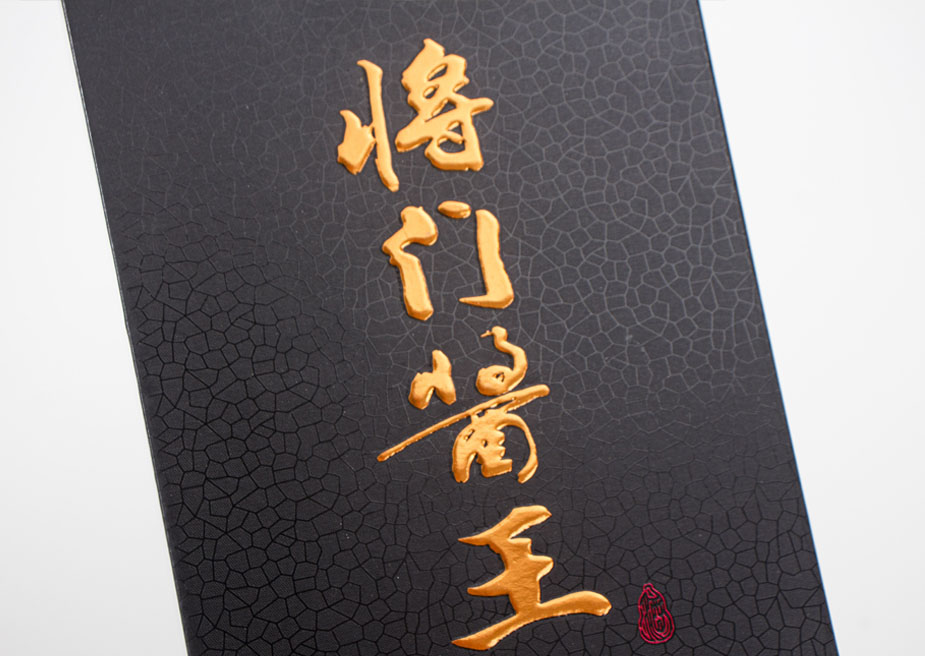 将门酱王